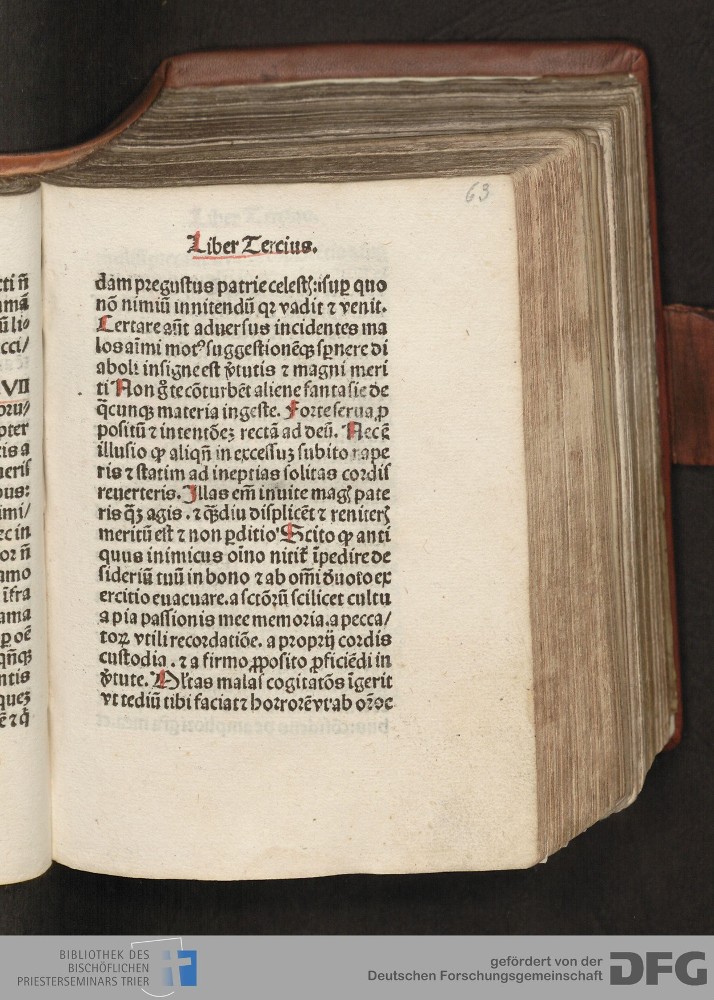 63
Liber Tercius.
dam pregustus patrie celestꝭ: isup̱ quo
nō nimiū innitendū qꝛ vadit ⁊ venit.
Certare aūt aduersus incidentes ma
los aīmi motꝰ suggestionēqꝫ spnere di
aboli insigne est ꝟtutis ⁊ magni meri
ti Non g̊ te cōturbēt aliene fantasie de
q̄cunqꝫ materia ingeste. Forte serua ꝓ
positū ⁊ intentōeꝫ rectā ad deū. Nec ē
illusio ꝙ aliqn̄ in excessuꝫ subito rape
ris ⁊ statim ad ineptias solitas cordis
reuerteris. Illas em̄ inuite magꝭ pate
ris qꝫ agis. ⁊ qꝫdiu displicēt ⁊ reniterꝭ
meritū est ⁊ non ꝑditio Scito ꝙ anti
quus inimicus oīno nitit᷑ īpedire de
sideriū tuū in bono ⁊ ab om̄i deuoto ex
ercitio euacuare. a sctōꝝ scilicet cultu
a pia passionis mee memoria. a pecca/
toꝝ vtili recordatiōe. a proprij cordis
custodia. ⁊ a firmo ꝓposito ꝓficiēdi in
ꝟtute. Mltas malas cogitatōs īgerit
vt tediū tibi faciat ⁊ horrorē vt ab orōe
cti n̄
VII
pter
tis a
ueris
bus:
imi/
rc in
or n̄
amo
īfra
ama
ꝑ oē
qn̄qꝫ
ntis
queꝫ
BIBLIOTHEK DES
BISCHÖFLICHEN
PRIESTERSEMINARS TRIER
gefördert von der
Deutschen Forschungsgemeinschaft
DFG